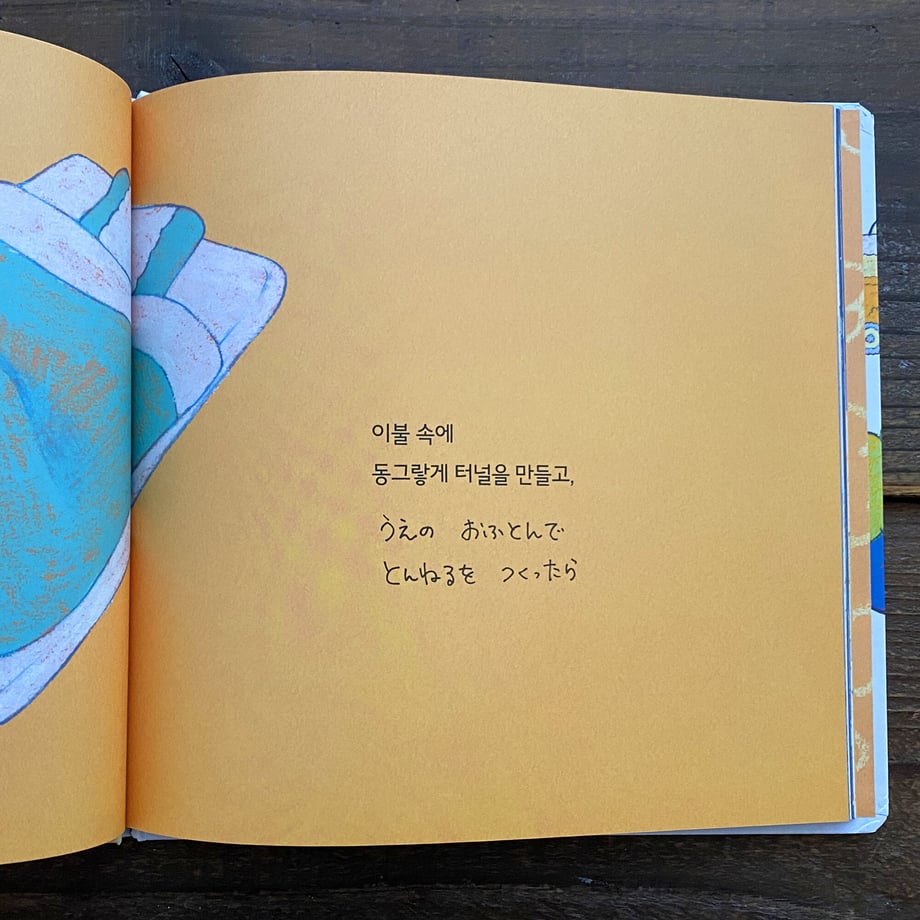 이불 속에
동그랗게 터널을 만들고,
うえの おふとんで
とんねるを つくったら